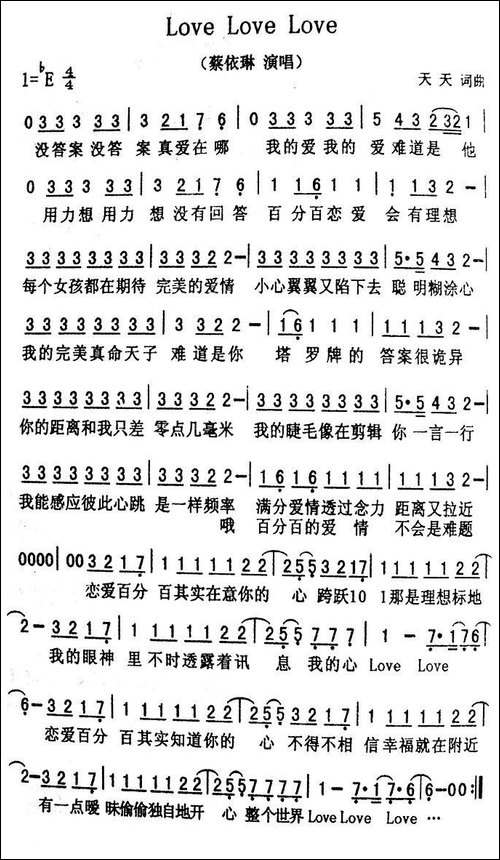 Love Love Love
（蔡依琳 演唱）
1=♭E 4/4
天天 词曲
0 3 3 3 3 3 3 | 3 3 2 1 7 6 | 0 3 3 3 3 3 3 | 5 4 3 2 3 2 1 |
没答案 没答 案 真爱在哪 我的爱 我的 爱 难道是 他
0 3 3 3 3 3 3 | 3 3 2 1 7 6 | 1 1 6 1 1 | 1 1 3 2 - |
用力想 用力 想 没有回答 百分百恋爱 会有理想
3 3 3 3 3 3 3 3 | 3 3 3 2 2 - | 3 3 3 3 3 3 3 3 | 5· 5 4 3 2 - |
每个女孩都在期待 完美的爱情 小心翼翼又陷下去 聪 明糊涂心
3 3 3 3 3 3 3 3 | 3 3 2 2 - | 1 6 1 1 1 | 1 1 1 3 2 - |
我的完美真命天子 难道是你 塔 罗牌的 答案很诡异
3 3 3 3 3 3 3 3 | 3 3 3 2 2 - | 3 3 3 3 3 3 3 3 | 5· 5 4 3 2 - |
你的距离和我只差 零点几毫米 我的睫毛像在剪辑 你 一言一行
3 3 3 3 3 3 3 3 | 3 3 3 2 2 - | 1 1 6 1 6 1 1 1 | 1 1 1 3 2 - |
我能感应彼此心跳 是一样频率 满分爱情透过念力 距离又拉近
哦 百分百的爱 情 不会是难题
0000 | 00 3 2 1 7 | 1 1 1 1 1 1 2 2 | 2 5 5 3 2 1 7 | 1 1 1 1 1 1 2 2 |
恋爱百分 百其实在意你的 心 跨跃10 1那是理想标地
2 - 3 2 1 7 | 1 1 1 1 1 1 2 2 | 2 5 5 5 7 7 7 | 1 - 7· 1 7 6 |
我的眼神 里不时透露着讯 息 我的心 Love Love
6 - 3 2 1 7 | 1 1 1 1 1 1 2 2 | 2 5 5 3 2 1 7 | 1 1 1 1 1 1 2 2 |
恋爱百分 百其实知道你的 心 不得不相 信幸福就在附近
2 - 3 2 1 7 | 1 1 1 1 1 1 2 2 | 2 5 5 7 7 7 7 | 1 - 7· 1 | 7· 6 6 - 00 :‖
有一点暧 昧偷偷独自地开 心 整个世界 Love Love Love …